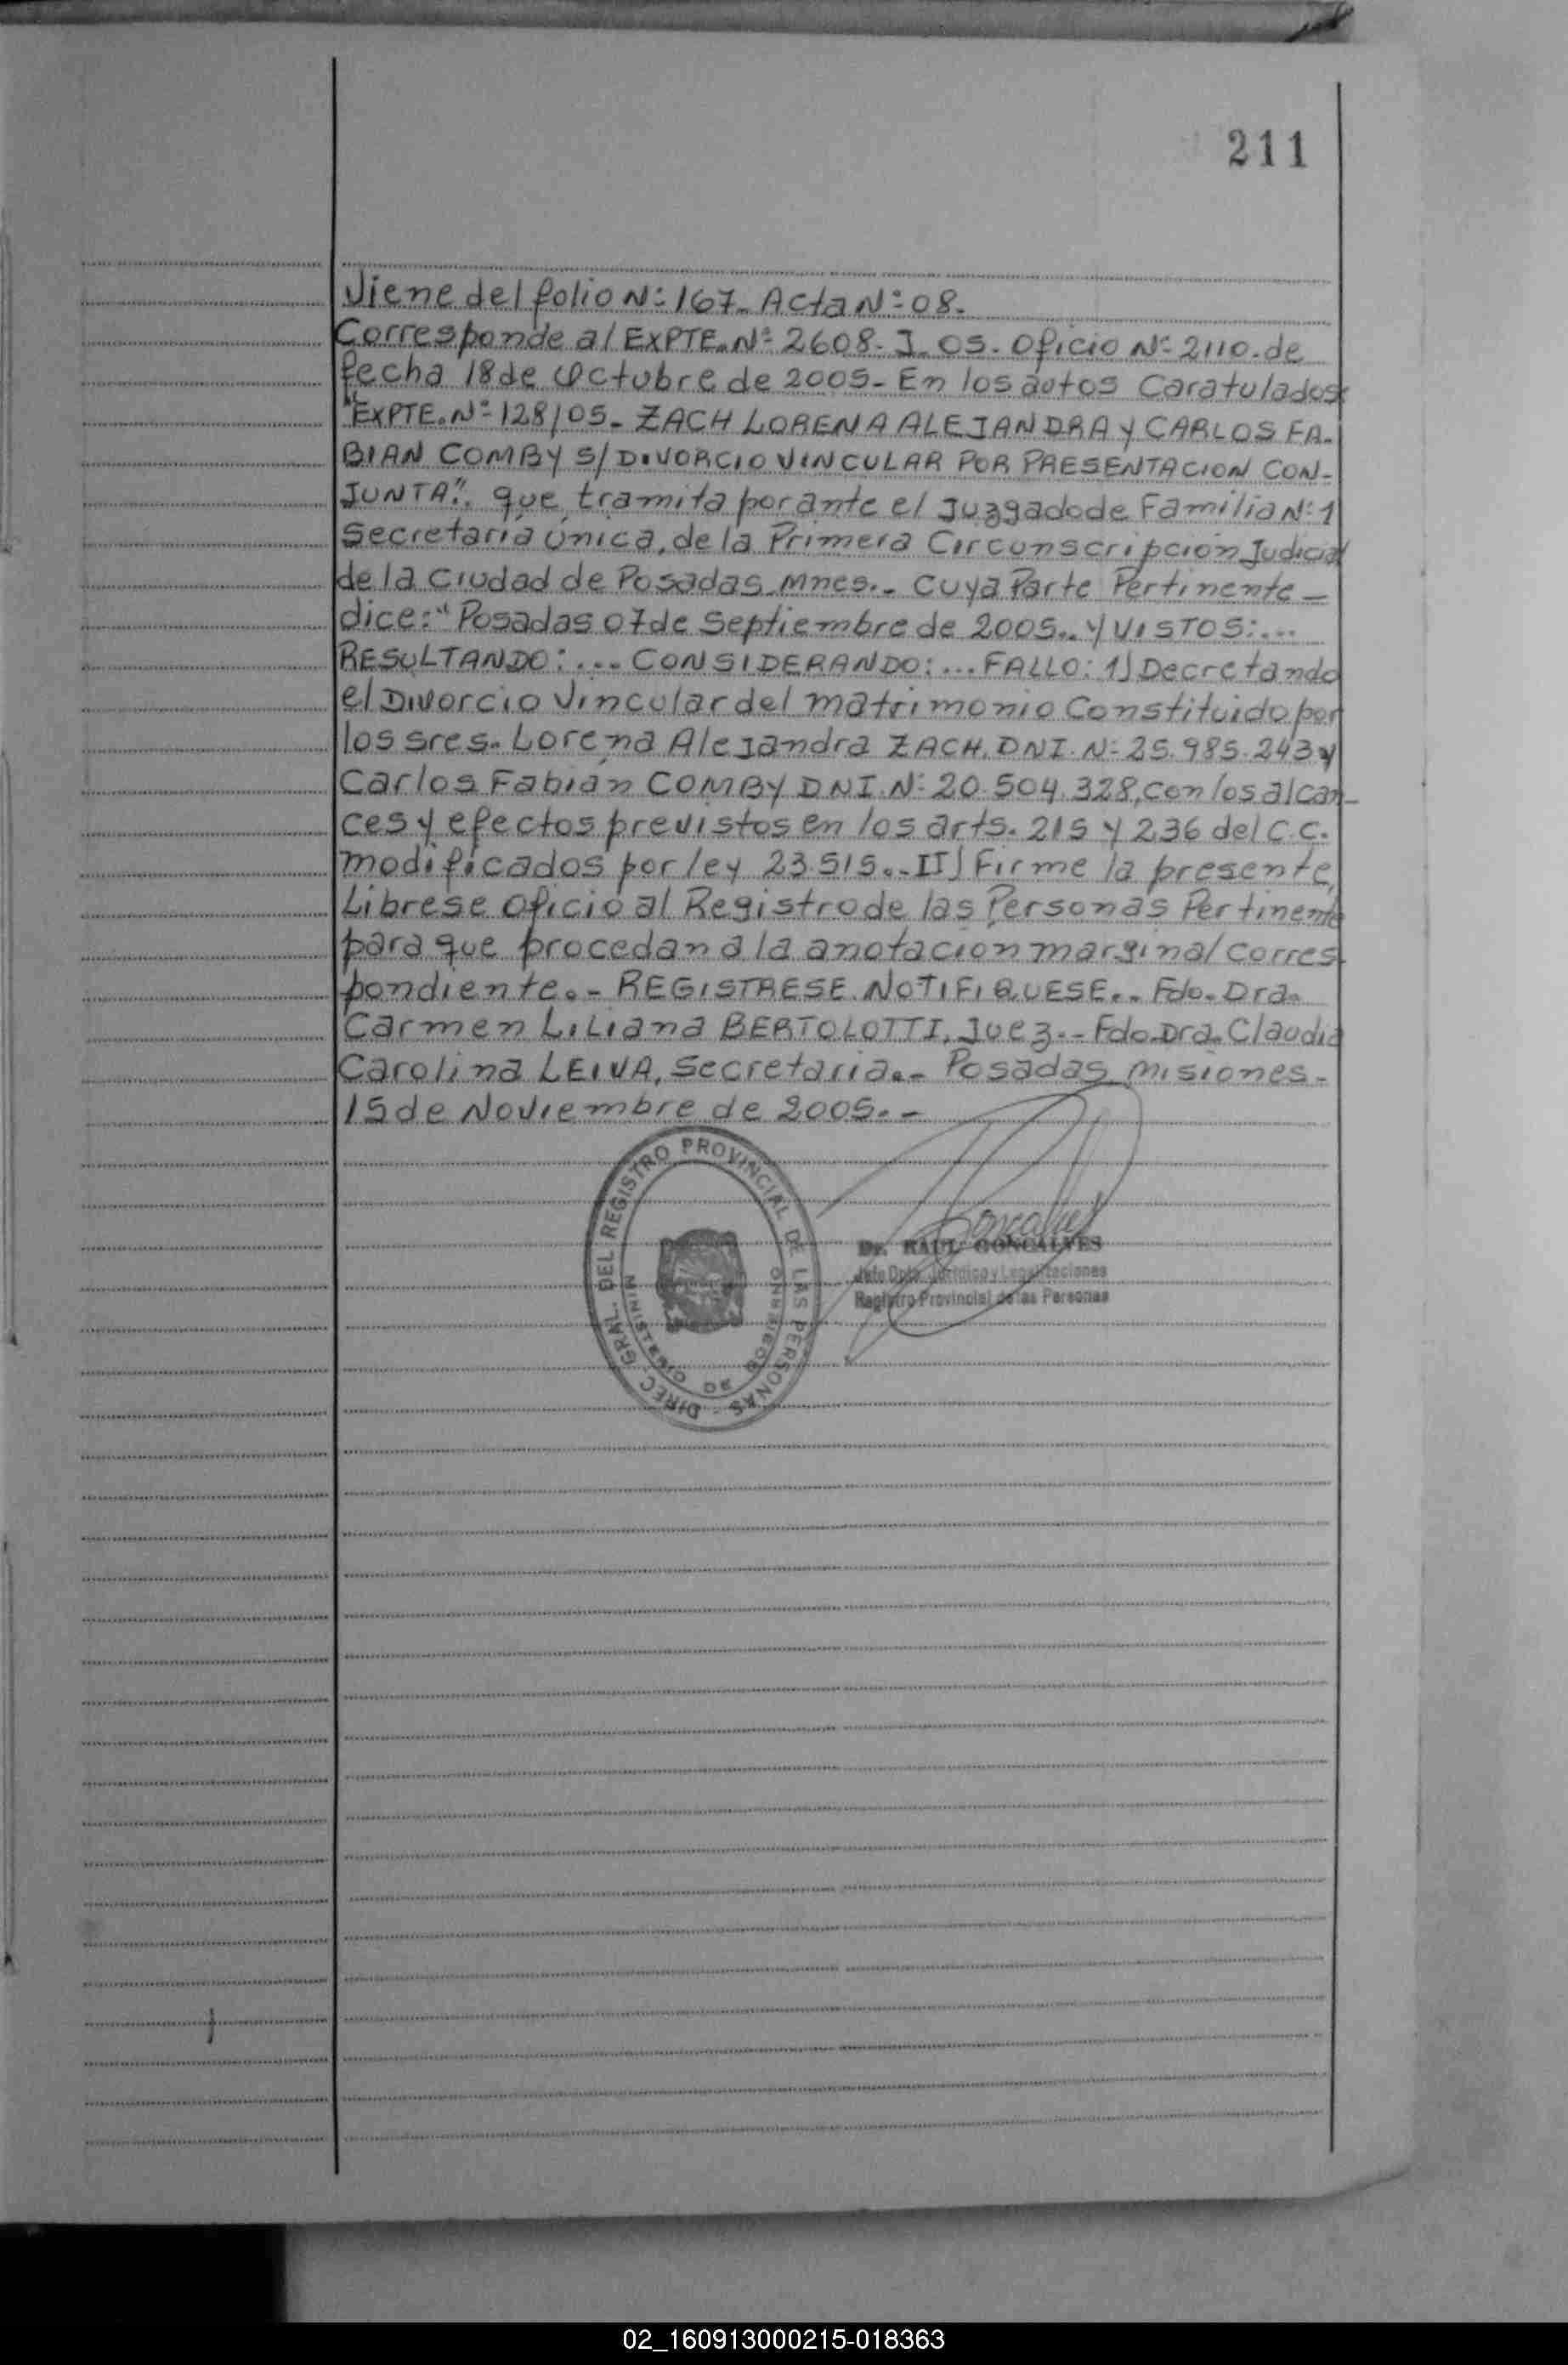 211
Viene del folio Nº 167- Acta Nº 08.
Corresponde al EXPTE. Nº 2608- J- 05. Oficio Nº 2110. de
fecha 18 de Octubre de 2005- En los autos Caratulados:
"EXPTE. Nº 128/05- ZACH LORENA ALEJANDRA Y CARLOS FA-
BIAN COMBY S/ DIVORCIO VINCULAR POR PRESENTACION CON-
JUNTA". que tramita por ante el Juzgado de Familia Nº 1
Secretaría Única, de la Primera Circunscripción Judicial
de la Ciudad de Posadas Mnes.- cuya Parte Pertinente-
dice: "Posadas 07 de Septiembre de 2005.. Y VISTOS:...
RESULTANDO:... CONSIDERANDO:... FALLO: 1) Decretando
el Divorcio Vincular del matrimonio Constituido por
los sres. Lorena Alejandra ZACH. DNI. Nº 25.985.243 y
Carlos Fabián COMBY DNI. Nº 20.504.328, con los alcan-
ces y efectos previstos en los arts. 215 y 236 del C.C.
modificados por ley 23.515.- II) Firme la presente,
Librese oficio al Registro de las Personas Pertinente
para que procedan a la anotación marginal corres-
pondiente.- REGISTRESE. NOTIFIQUESE.. Fdo. Dra.
Carmen Liliana BERTOLOTTI, Juez.- Fdo. Dra. Claudia
Carolina LEIVA, Secretaria.- Posadas, misiones-
15 de Noviembre de 2005.-
DIREC. GRAL. DEL REGISTRO PROVINCIAL DE LAS PERSONAS -
MINISTERIO DE GOBIERNO
Goncalves
Dr. RAUL GONCALVES
Jefe Dpto. Jurídico y Legalizaciones
Registro Provincial de las Personas
02_160913000215-018363